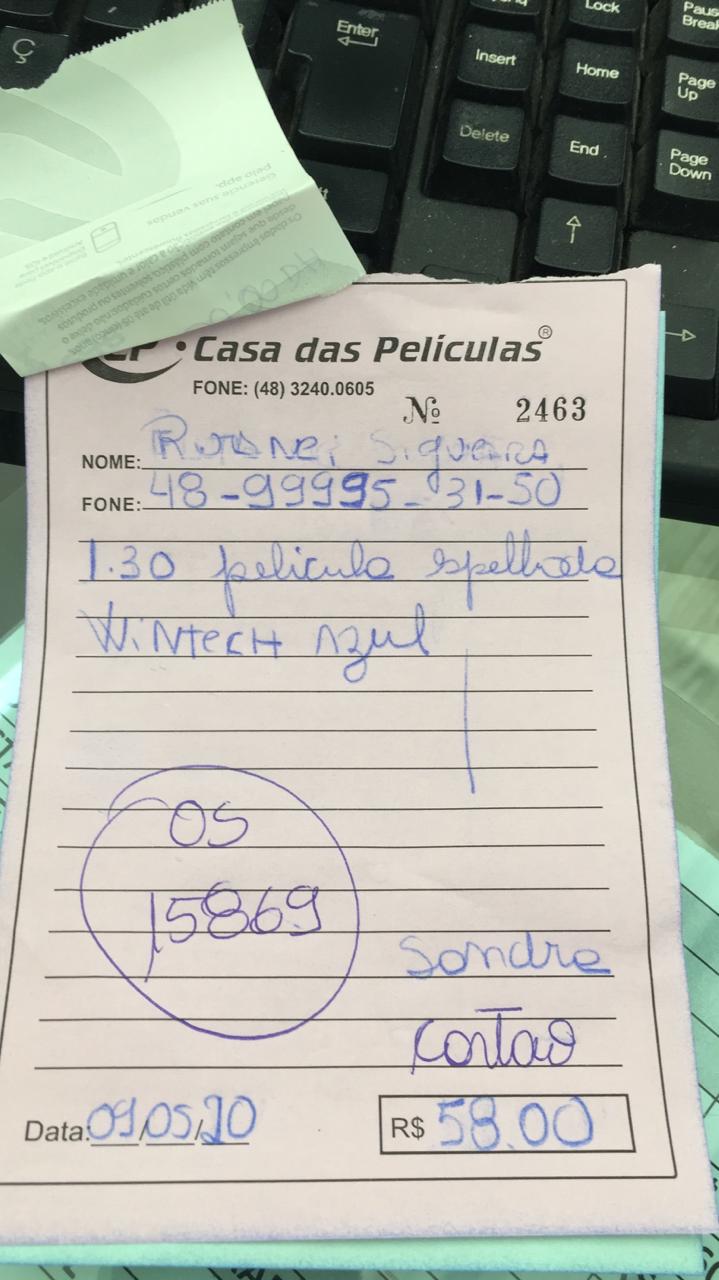 Ç
Enter
Lock
Pause
Break
Insert
Home
Page
Up
Delete
End
Page
Down
Gerencie suas vendas
pelo app.
CP • Casa das Películas®
FONE: (48) 3240.0605
Nº 2463
NOME: Siqueira
FONE: 48-99995-31-50
1.30 pelicula espelhada
WiNtecH Azul
OS
15869
Sandra
cartao
Data: 09/05/20
R$ 58.00